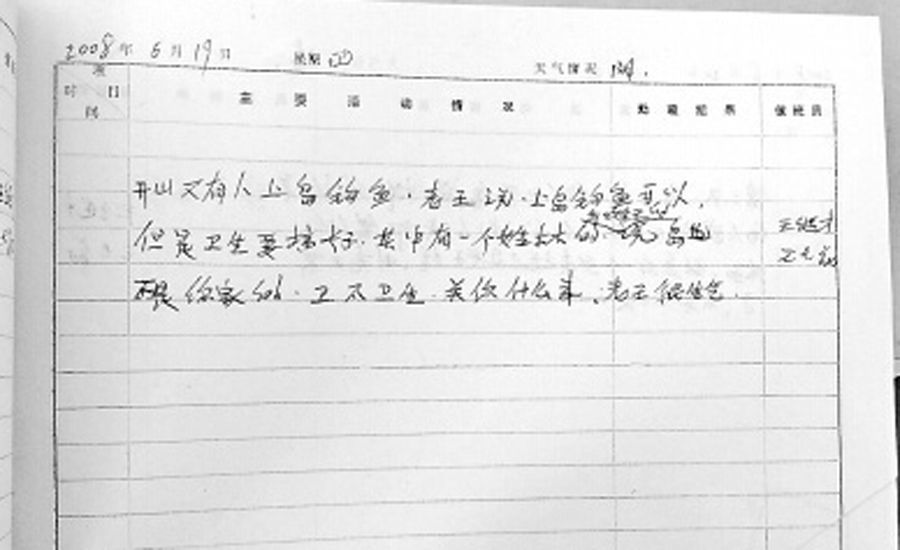 2008年 6月19日 星期四 天气情况 晴.
项目 时间 主要活动情况 勤 值班员
开山又有人上岛钓鱼.老王说.上岛钓鱼可以,
但是卫生要搞好.其中有一个姓林的说岛也 王继才
不是你家的.卫不卫生.关你什么事,老王很生气. 王仕花